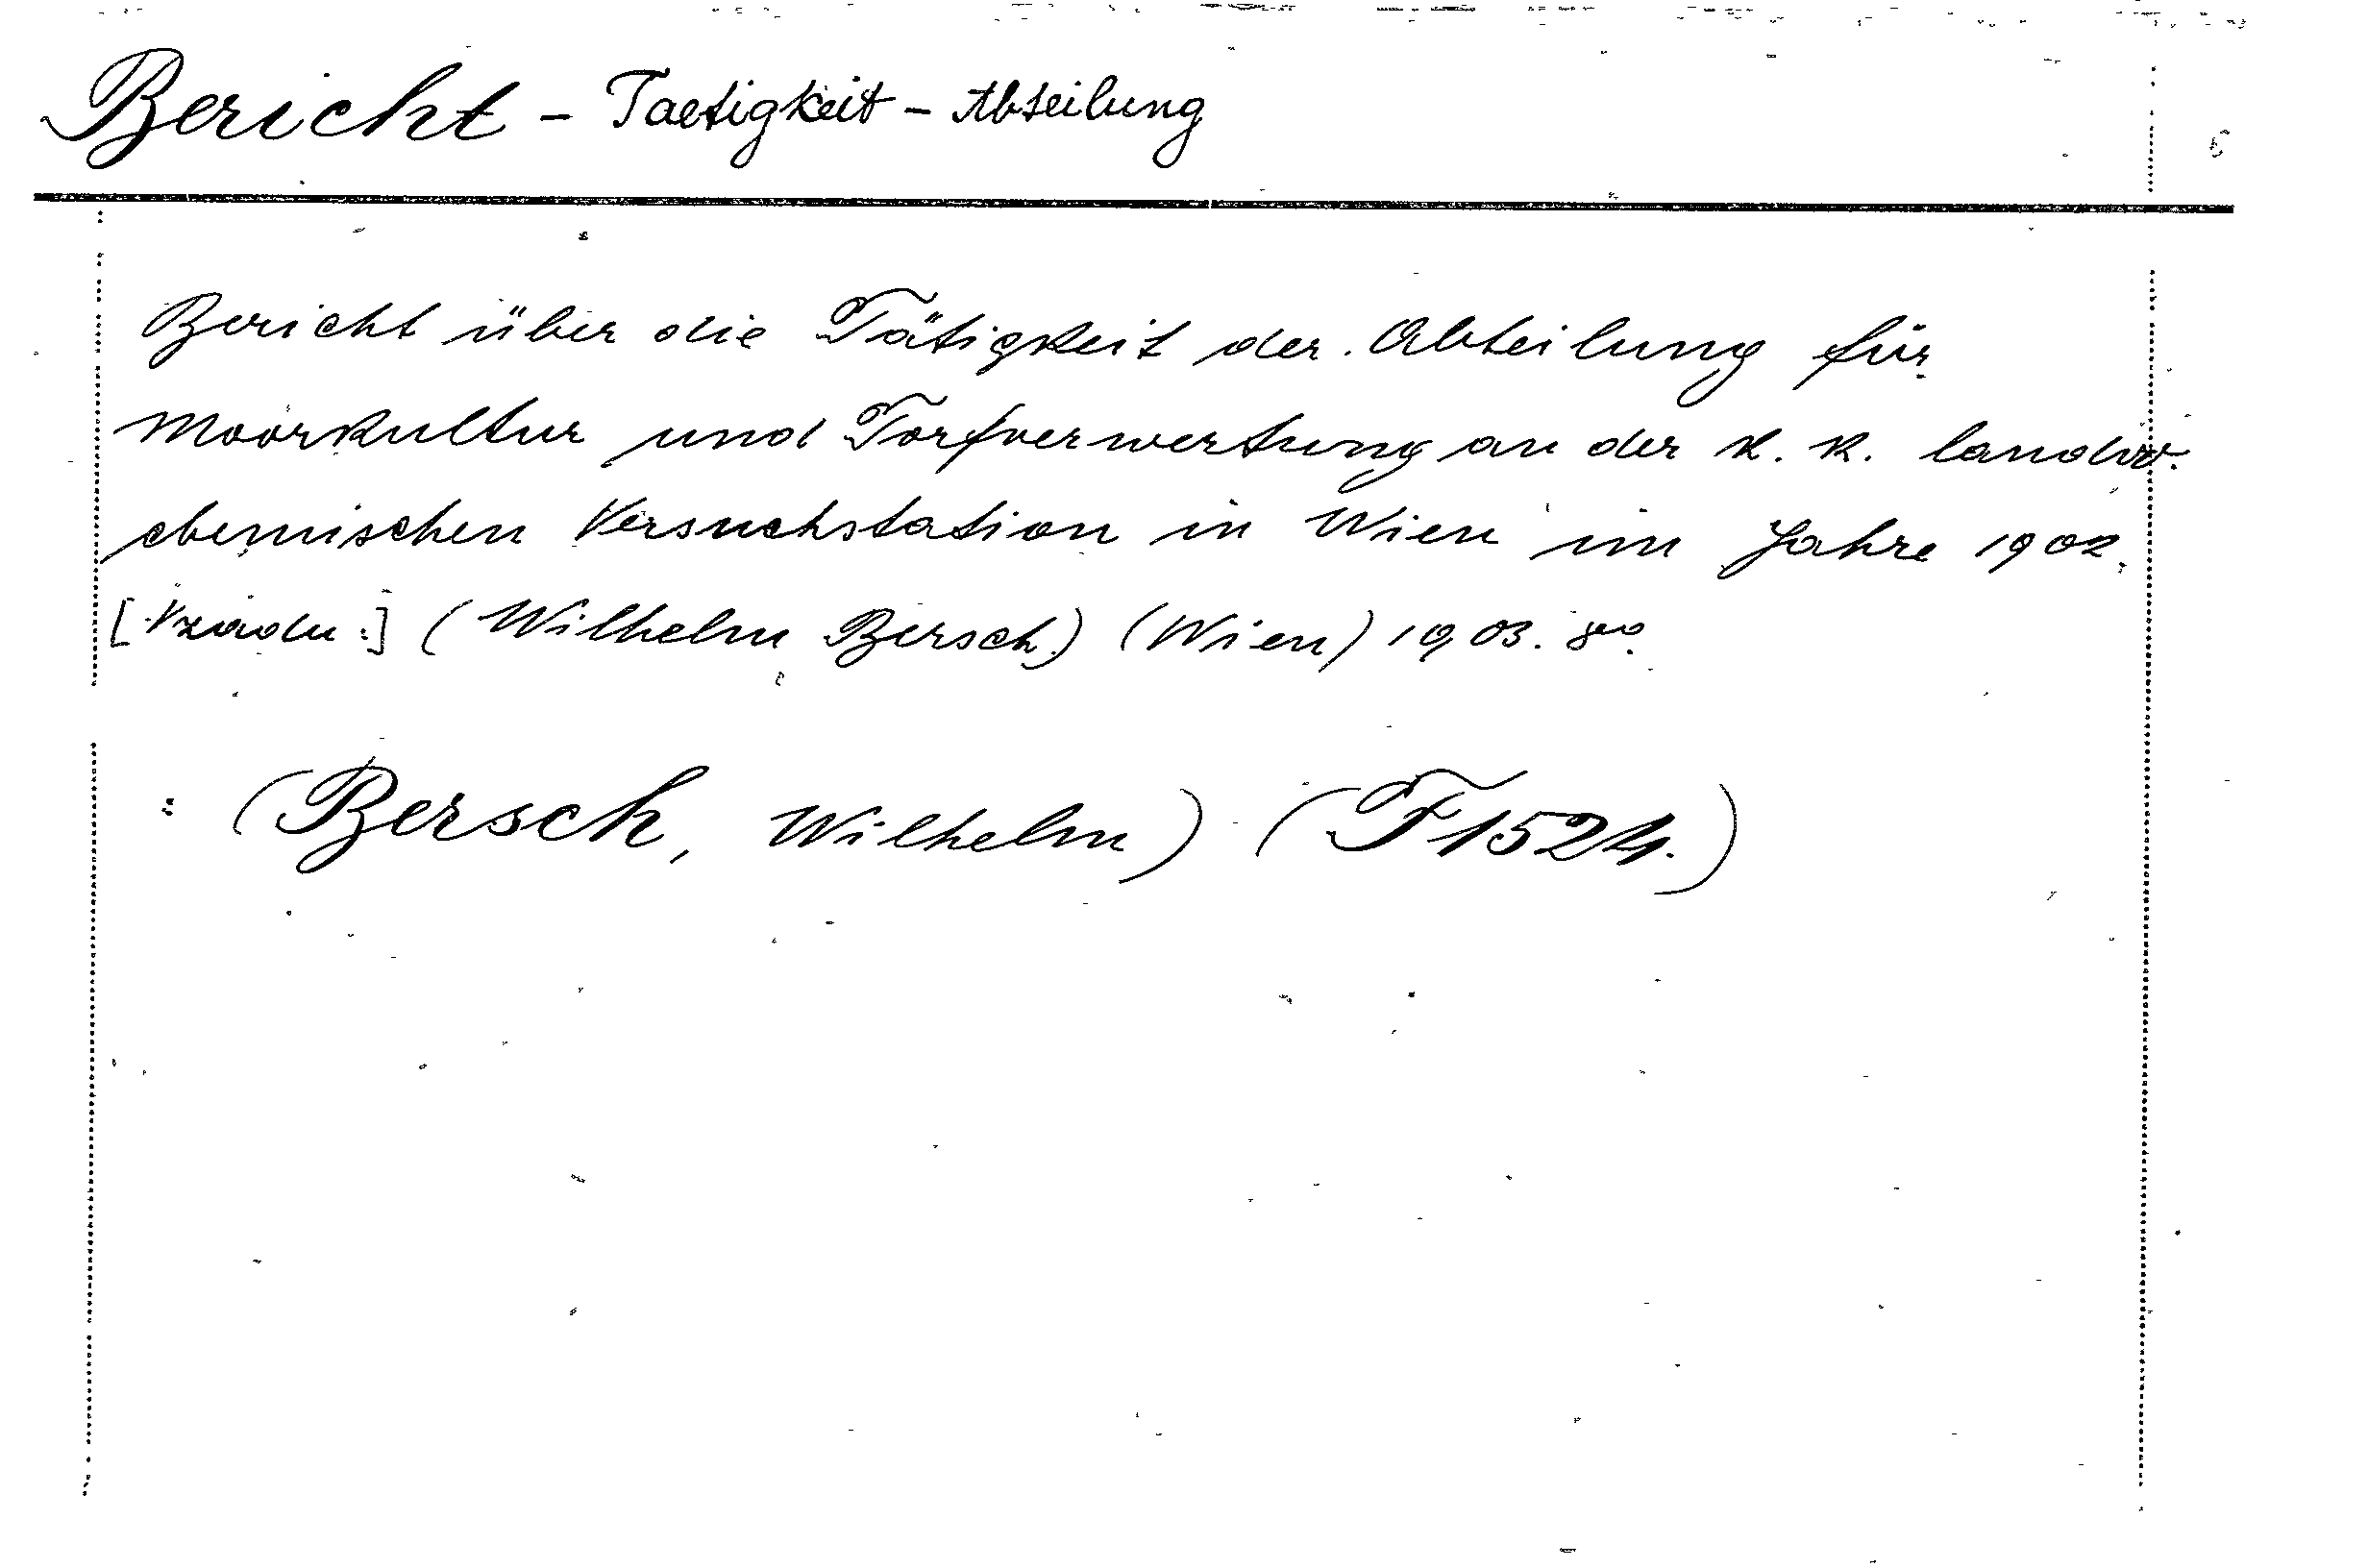 Bericht - Taetigkeit - Abteilung
Bericht über die Tätigkeit der Abteilung für
Moorkultur und Torfverwertung an der k. k. landw.
chemischen Versuchstation in Wien im Jahre 1902.
[Vzadu:] (Wilhelm Bersch.) (Wien) 1903. 8vo.
: (Bersch, Wilhelm) (F1524.)